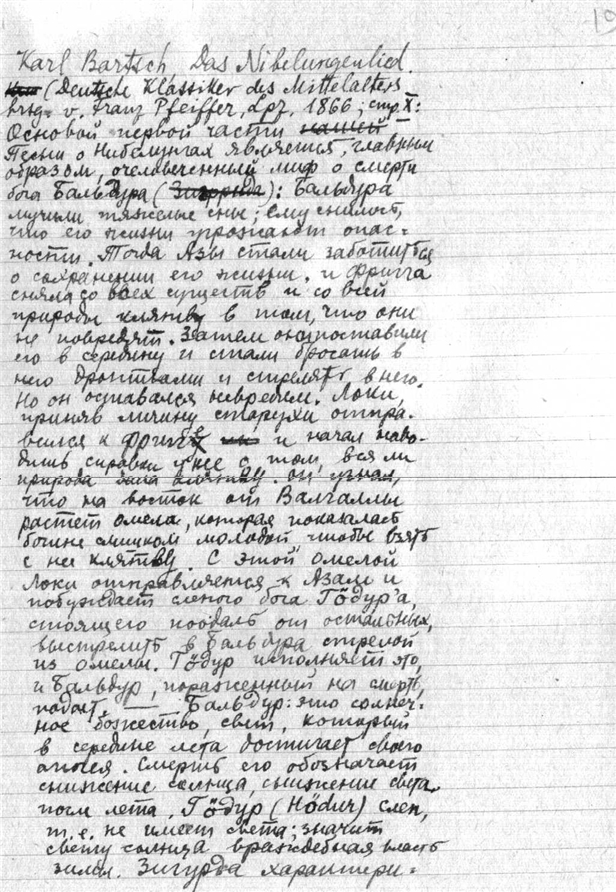 19
Karl Bartsch, Das Nibelungenlied.
(Deutsche Klassiker des Mittelalters
hrsg. v. Franz Pfeiffer, Lpz. 1866; стр. X:
Основой первой части нашей
Песни о Нибелунгах является, главным
образом, очеловеченный миф о смерти
бога Бальдура (Зигфрида): Бальдура
мучили тяжелые сны; ему снилось,
что его жизни угрожает опас=
ность. Тогда Азы стали заботиться
о сохранении его жизни. и Фригга
сняла со всех существ и со всей
природы клятву в том, что они
не повредят. Затем они поставили
его в середину и стали бросать в
него дротиками и стрелять в него.
Но он оставался невредим. Локи,
приняв личину старухи отпра-
вился к Фригге и начал наво-
дить справки у нее о том, вся ли
природа дала клятву. он узнал,
что на восток от Валгаллы
растет омела, которая показалась
богине слишком молодой чтобы взять
с нее клятву. С этой омелой
Локи отправляется к Азам и
побуждает слепого бога Гöдур'а,
стоящего поодаль от остальных,
выстрелить в Бальдура стрелой
из омелы. Гöдур исполняет это,
и Бальдур, пораженный на смерть,
падает. — Бальдур: это солнеч=
ное божество, свет, который
в середине лета достигает своего
апогея. Смерть его обозначает
снижение солнца, снижение света
после лета. Гöдур (Hödur) слеп,
т. е. не имеет света; значит
свету солнца враждебная власть
зимы. Зигурда характери=